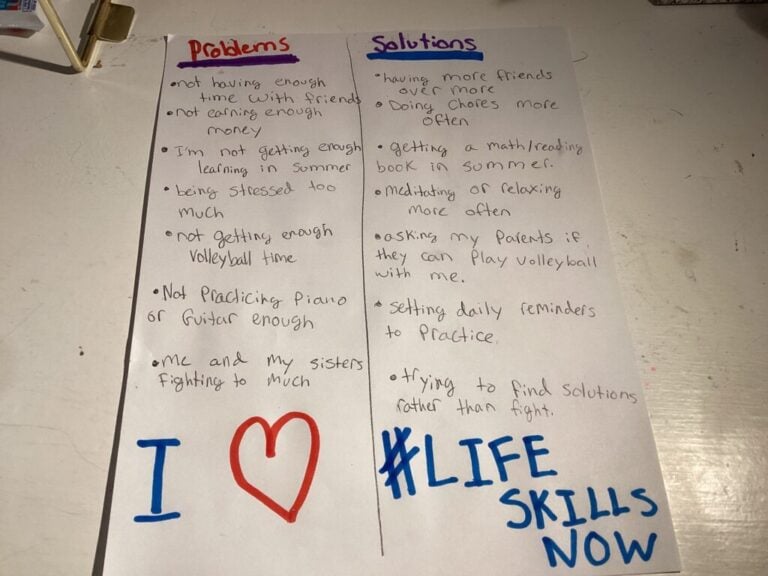 Problems
•not having enough
time with friends
•not earning enough
money
•I'm not getting enough
learning in summer
•being stressed too
much
•not getting enough
Volleyball time
•Not Practicing Piano
or Guitar enough
•me and my sisters
Fighting to much
I ♡
Solutions
•having more friends
over more
•Doing chores more
often
•getting a math/reading
book in summer.
•meditating or relaxing
more often
•asking my Parents if
they can Play volleyball
with me.
•setting daily reminders
to Practice.
•trying to find solutions
rather than fight.
#LIFE
SKILLS
NOW